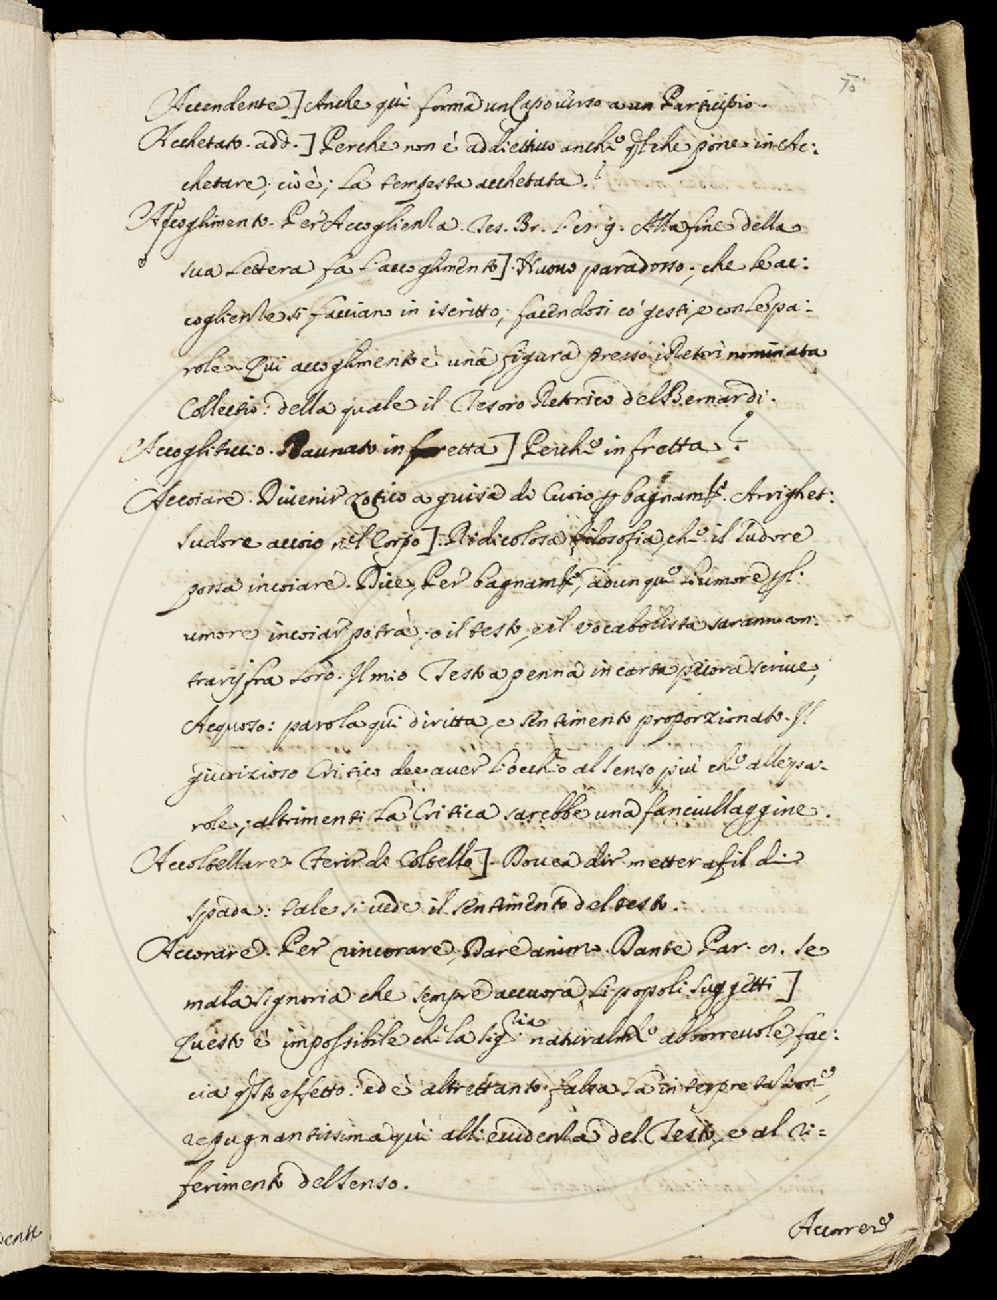 Accendente] Anche quì forma un Capoverso a un Participio.
Acchetato. add.] Perche non è addiettiuo anch.º q̃l che pone in Ac:
chetare; cioè; La tempesta acchetata?
Accoglimento. Per Accoglienza. Tes. Br. Alla fine della
sua Lettera fa L'accoglimento]. Nuouo paradosso; che le ac:
coglienze si facciano in iscritto; facendosi cõ gesti, e con le pa:
role. Quì accoglimento è una figura presso i Retori nominata
Collectio: della quale il Tesoro Retorico del Bernardi.
Accogliticcio. Raunato in fretta] Perch.º in fretta?
Accoiare. Diuenir zotico a guisa di Cuoio p bagnam.to Arrighet:
Sudore accoio nel Corpo]. Ridicolosa filosofia, ch.º il Sudore
possa incoiare. Dice, Per bagnam.to, adunqu.º L'umore, s'l'
umore incoiar potrà; o il testo, e il vocabolista saranno con:
trarij fra Loro. Il mio Testo a penna in carta pecora scriue,
Acquoso: parola quì diritta, e sentimento proporzionato. Il
giudizioso Critico dee auer l'occhio al senso più ch.º alle pa-
role; altrimenti La Critica sarebbe una fanciullaggine.
Accoltellare. Ferir di Coltello]. Douea dir metter a fil di
spada: tale si uede il sentimento del testo.
Accorare. Per rincorare, Dare animo. Dante Par. 8. Se
mala signoria che sempre accuora Li popoli suggetti]
Questo è impossibile che la sig.ria naturalm.te abborreuole fac:
cia q̃sto effetto: ed è altrettanto falsa La interpretazion.º,
repugnantissima quì all'euidenza del Testo, e al ri=
ferimento del Senso.
Accorrere